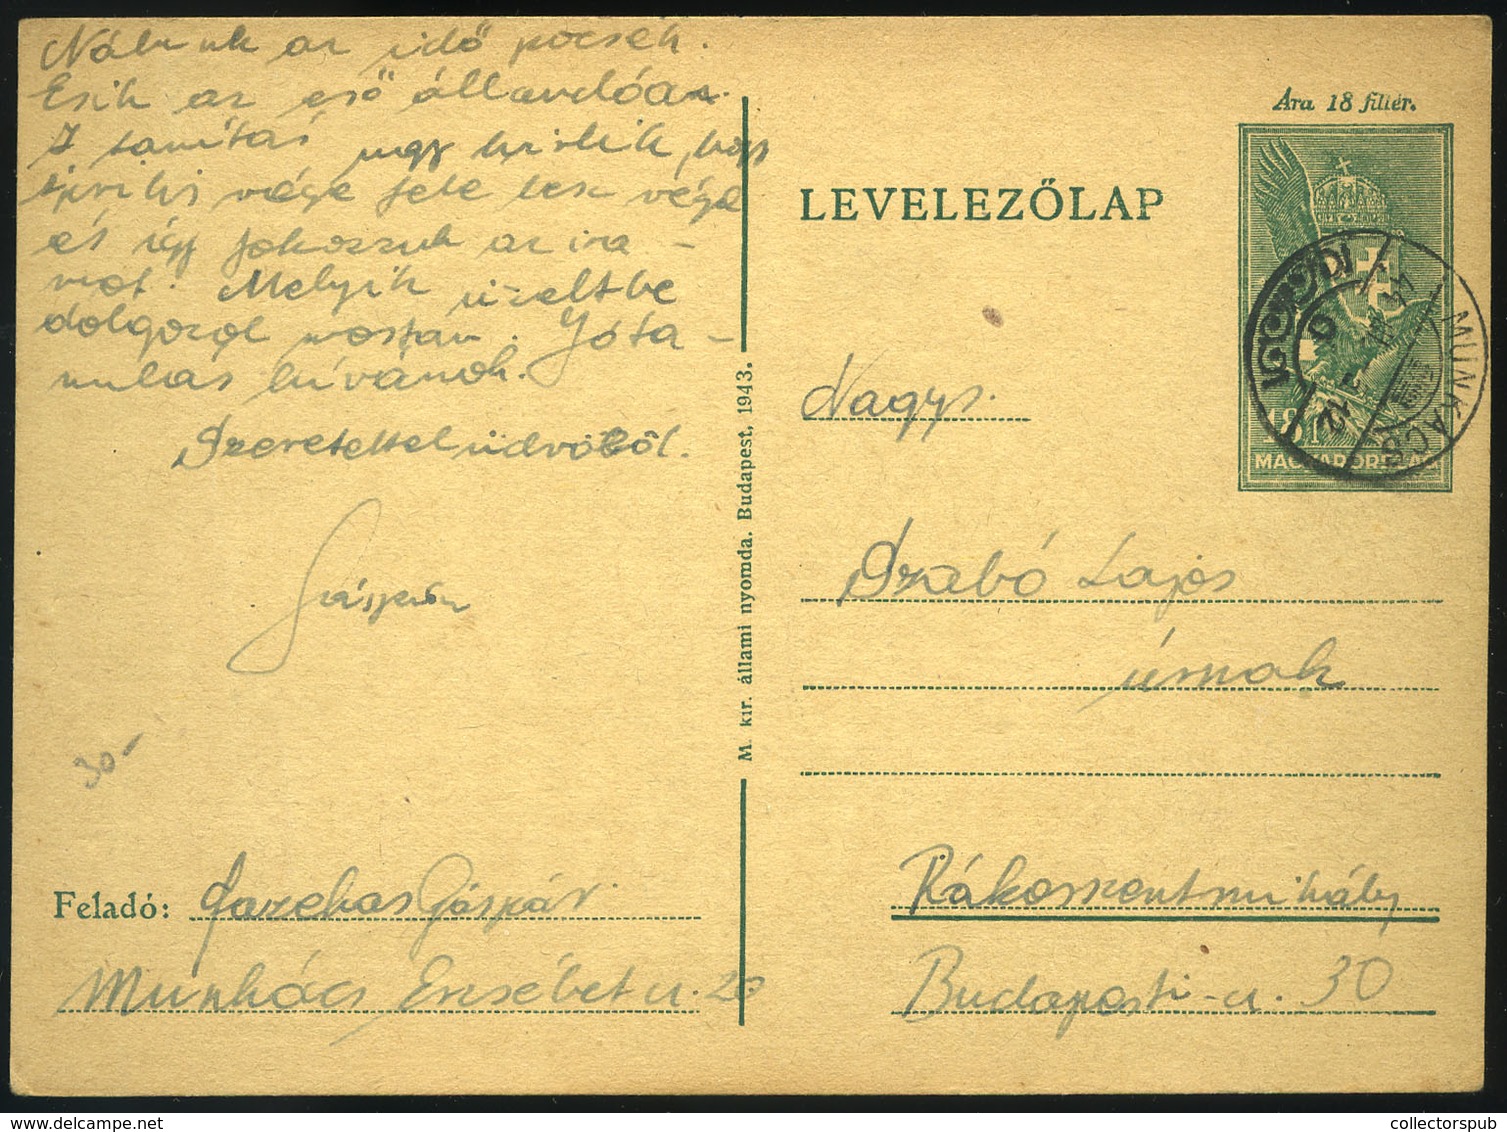 Nálunk az idő pocsék.
Esik az eső állandóan.
A tanítás úgy hírlik, hogy
április vége fele lesz vége
és így fokozzuk az ira-
mot. Melyik üzeltbe
dolgozol mostan. Jóta-
nulas kívánok.
Szeretettel üdvözöl.
Gáspár
30-
Feladó: Gáspár
Munkács Erzsébet u. 20
M. kir. állami nyomda. Budapest, 1943.
Ára 18 fillér.
LEVELEZŐLAP
MAGYARORSZÁG
MUNKÁCS
Nagys.
Szabó Lajos
úrnak
Rákosszentmihály
Budapesti-u. 30
collectorspub